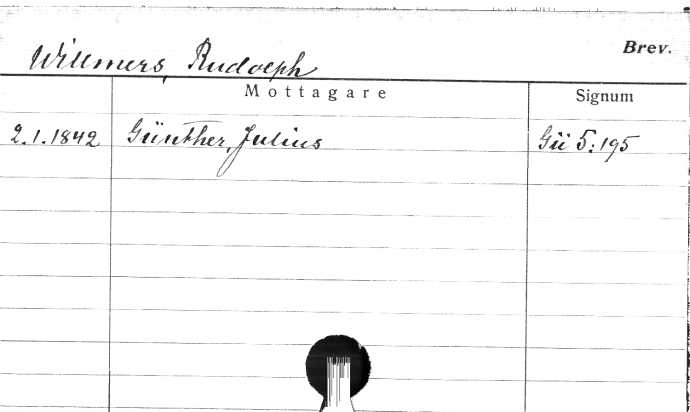 Willmers, Rudolph
Brev.
Mottagare Signum
2.1.1842 Günther, Julius Gü 5:195